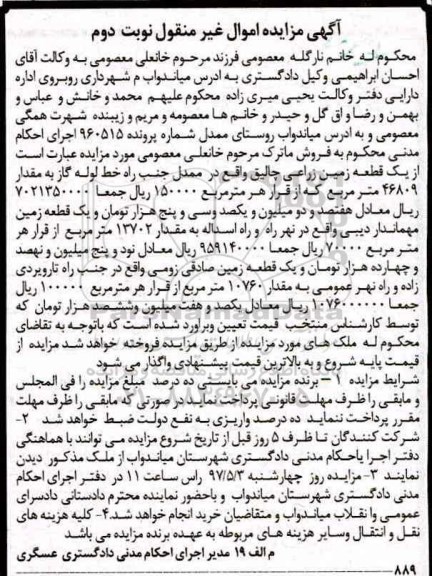 آگهی مزایده اموال غیر منقول نوبت دوم
محکوم له خانم نارگله معصومی فرزند مرحوم خانعلی معصومی به وکالت آقای
احسان ابراهیمی وکیل دادگستری به ادرس میاندواب م شهرداری روبروی اداره
دارایی دفتر وکالت یحیی میری زاده محکوم علیهم محمد و خانش و عباس و
بهمن و رضا و اق گل و حیدر و خانم ها معصومه و مریم و زیبنده شهرت همگی
معصومی و به ادرس میاندواب روستای ممدل شماره پرونده ۹۶۰۵۱۵ اجرای احکام
مدنی محکوم به فروش ماترک مرحوم خانعلی معصومی مورد مزایده عبارت است
از یک قطعه زمین زراعی جالیق واقع در ممدل جنب راه خط لوله گاز به مقدار
۴۶۸۰۹ متر مربع که از قرار هر مترمربع ۱۵۰۰۰۰ ریال جمعا ۷۰۲۱۳۵۰۰۰۰
ریال معادل هفتصد و دو میلیون و یکصد وسی و پنج هزار تومان و یک قطعه زمین
مهماندار دیبی واقع در نهر راه و راه اسداله به مقدار ۱۳۷۰۲ متر مربع از قرار هر
متر مربع ۷۰۰۰۰ ریال جمعا ۹۵۹۱۴۰۰۰۰ ریال معادل نود و پنج میلیون و نهصد
و چهارده هزار تومان و یک قطعه زمین صادقی زومی واقع در جنب راه تارویردی
زاده و راه نهر عمومی به مقدار ۱۰۷۶۰ متر مربع از قرار هر مترمربع ۱۰۰۰۰۰ ریال
جمعا ۱۰۷۶۰۰۰۰۰۰ ریال معادل یکصد و هفت میلیون وششصد هزار تومان که
توسط کارشناس منتخب قیمت تعیین وبرآورد شده است که باتوجه به تقاضای
محکوم له ملک های مورد مزایده از طریق مزایده فروخته خواهد شد مزایده از
قیمت پایه شروع و به بالاترین قیمت پیشنهادی واگذار می شود
شرایط مزایده ۱- برنده مزایده می بایستی ده درصد مبلغ مزایده را فی المجلس
و مابقی را ظرف مهلت قانونی پرداخت نماید در صورتی که مابقی را ظرف مهلت
مقرر پرداخت ننماید ده درصد واریزی به نفع دولت ضبط خواهد شد ۲-
شرکت کنندگان تا ظرف ۵ روز قبل از تاریخ شروع مزایده می توانند با هماهنگی
دفتر اجرا یاحکام مدنی دادگستری شهرستان میاندواب از ملک مذکور دیدن
نمایند ۳- مزایده روز چهارشنبه ۹۷/۵/۳ راس ساعت ۱۱ در دفتر اجرای احکام
مدنی دادگستری شهرستان میاندواب و باحضور نماینده محترم دادستانی دادسرای
عمومی وا نقلاب میاندواب و متقاضیان خرید انجام خواهد شد.۴- کلیه هزینه های
نقل و انتقال وسایر هزینه های مربوطه به عهده برنده مزایده می باشد
م الف ۱۹ مدیر اجرای احکام مدنی دادگستری عسگری
۸۸۹